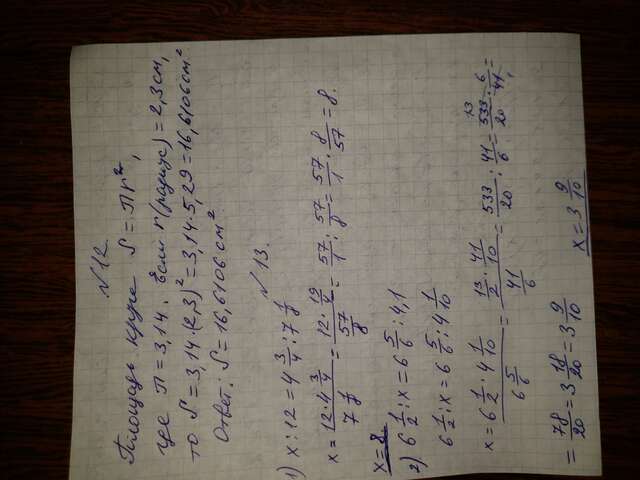 №12.
Площадь круга S = πr²,
где π = 3,14. Если r (радиус) = 2,3 см,
то S = 3,14·(2,3)² = 3,14·5,29 = 16,6106 см²
Ответ: S = 16,6106 см²
№13.
1) x : 12 = 4 3/4 : 7 1/8
x = (12 · 4 3/4)/(7 1/8) = (12 · 19/2)/(57/8) = 57/1 : 57/8 = 57/1 · 8/57 = 8.
x = 8
2) 6 1/2 : x = 6 5/6 : 4,1
6 1/2 : x = 6 5/6 : 4 1/10
x = (6 1/2 · 4 1/10)/(6 5/6) = (13/2 · 41/10)/(41/6) = 533/20 : 41/6 = 13 533/20 · 6/41 =
= 78/20 = 3 18/20 = 3 9/10 x = 3 9/10